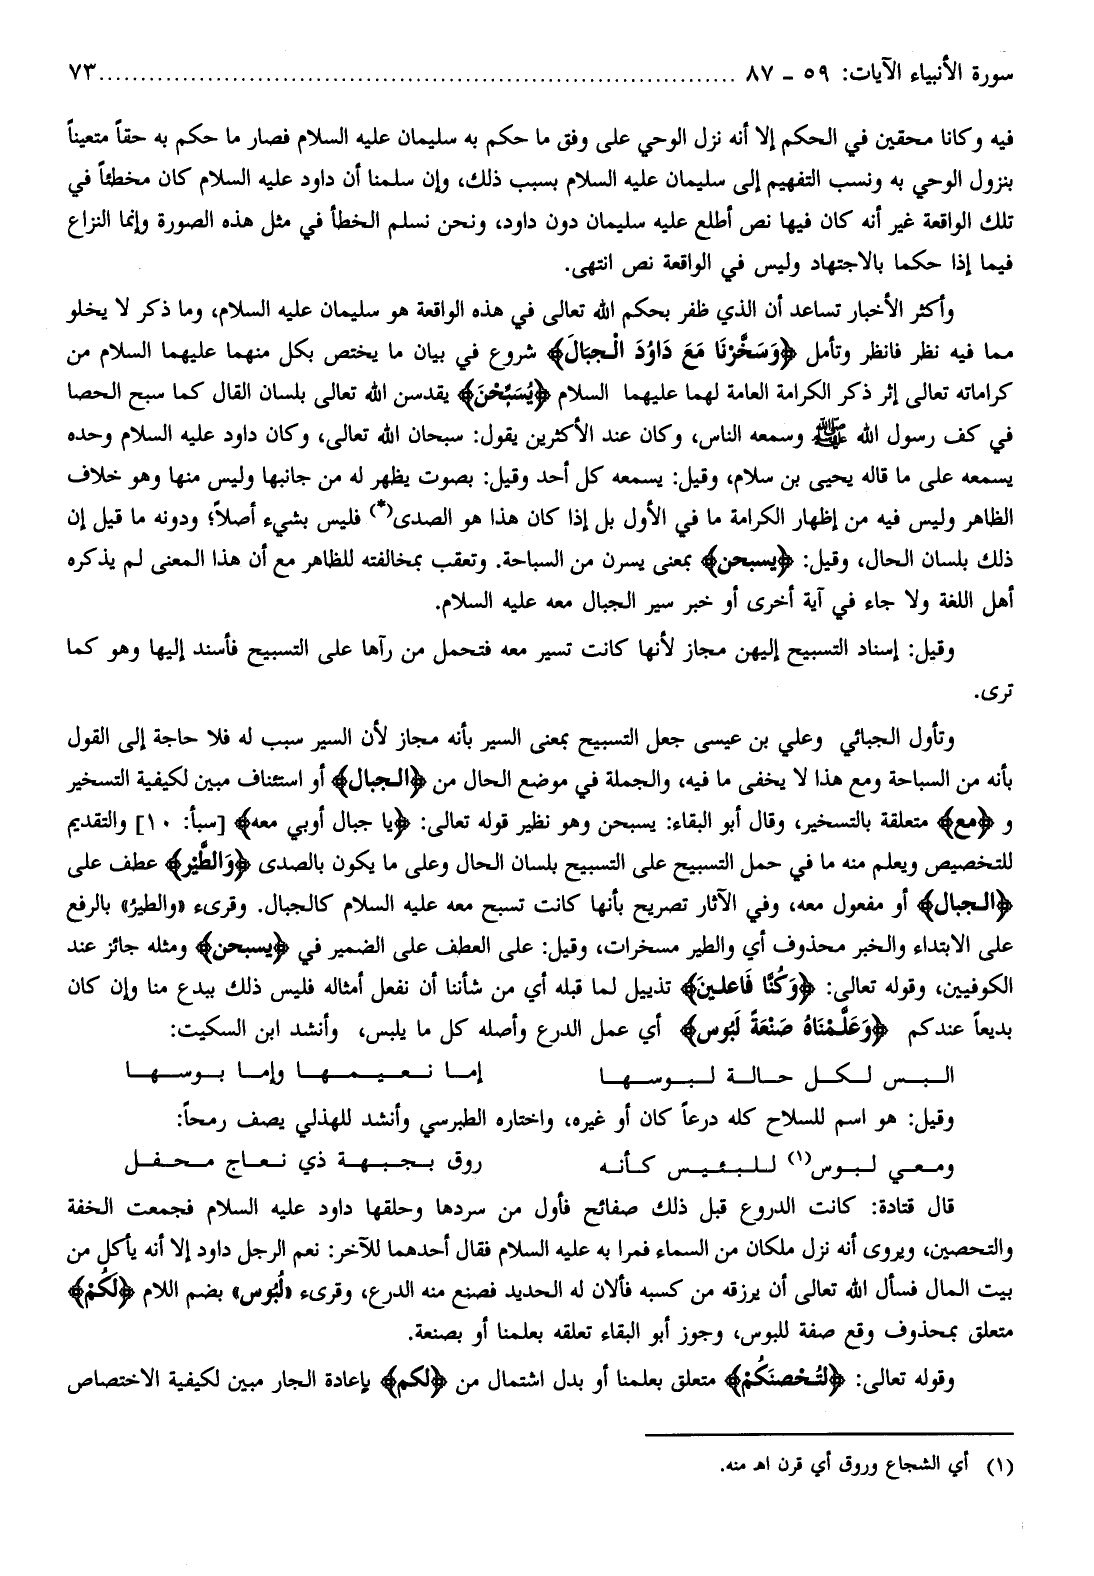 سورة الأنبياء الآيات: ٥٩ ـ ٨٧ ........................................................................... ٧٣
فيه وكانا محقين في الحكم إلا أنه نزل الوحي على وفق ما حكم به سليمان عليه السلام فصار ما حكم به حقاً متعيناً
بنزول الوحي به ونسب التفهيم إلى سليمان عليه السلام بسبب ذلك، وإن سلمنا أن داود عليه السلام كان مخطئاً في
تلك الواقعة غير أنه كان فيها نص أطلع عليه سليمان دون داود، ونحن نسلم الخطأ في مثل هذه الصورة وإنما النزاع
فيما إذا حكما بالاجتهاد وليس في الواقعة نص انتهى.
وأكثر الأخبار تساعد أن الذي ظفر بحكم الله تعالى في هذه الواقعة هو سليمان عليه السلام، وما ذكر لا يخلو
مما فيه نظر فانظر وتأمل ﴿وَسَخَّرْنَا مَعَ دَاوُدَ الْجِبَالَ﴾ شروع في بيان ما يختص بكل منهما عليهما السلام من
كراماته تعالى إثر ذكر الكرامة العامة لهما عليهما السلام ﴿يُسَبِّحْنَ﴾ يقدسن الله تعالى بلسان القال كما سبح الحصا
في كف رسول الله ﷺ وسمعه الناس، وكان عند الأكثرين يقول: سبحان الله تعالى، وكان داود عليه السلام وحده
يسمعه على ما قاله يحيى بن سلام، وقيل: يسمعه كل أحد وقيل: بصوت يظهر له من جانبها وليس منها وهو خلاف
الظاهر وليس فيه من إظهار الكرامة ما في الأول بل إذا كان هذا هو الصدى(*) فليس بشيء أصلاً؛ ودونه ما قيل إن
ذلك بلسان الحال، وقيل: ﴿يسبحن﴾ بمعنى يسرن من السباحة. وتعقب بمخالفته للظاهر مع أن هذا المعنى لم يذكره
أهل اللغة ولا جاء في آية أخرى أو خبر سير الجبال معه عليه السلام.
وقيل: إسناد التسبيح إليهن مجاز لأنها كانت تسير معه فتحمل من رآها على التسبيح فأسند إليها وهو كما
ترى.
وتأول الجبائي وعلي بن عيسى جعل التسبيح بمعنى السير بأنه مجاز لأن السير سبب له فلا حاجة إلى القول
بأنه من السباحة ومع هذا لا يخفى ما فيه، والجملة في موضع الحال من ﴿الجبال﴾ أو استئناف مبين لكيفية التسخير
و ﴿مع﴾ متعلقة بالتسخير، وقال أبو البقاء: يسبحن وهو نظير قوله تعالى: ﴿يا جبال أوبي معه﴾ [سبأ: ١٠] والتقديم
للتخصيص ويعلم منه ما في حمل التسبيح على التسبيح بلسان الحال وعلى ما يكون بالصدى ﴿وَالطَّيْرَ﴾ عطف على
﴿الجبال﴾ أو مفعول معه، وفي الآثار تصريح بأنها كانت تسبح معه عليه السلام كالجبال. وقرىء «والطيرُ» بالرفع
على الابتداء والخبر محذوف أي والطير مسخرات، وقيل: على العطف على الضمير في ﴿يسبحن﴾ ومثله جائز عند
الكوفيين، وقوله تعالى: ﴿وَكُنَّا فَاعلينَ﴾ تذييل لما قبله أي من شأننا أن نفعل أمثاله فليس ذلك ببدع منا وإن كان
بديعاً عندكم ﴿وَعَلَّمْنَاهُ صَنْعَةَ لَبُوس﴾ أي عمل الدرع وأصله كل ما يلبس، وأنشد ابن السكيت:
البس لكل حالة لبوسها إما نعيمها وإما بوسها
وقيل: هو اسم للسلاح كله درعاً كان أو غيره، واختاره الطبرسي وأنشد للهذلي يصف رمحاً:
ومعي لبوس(١) للبئيس كأنه روق بجبهة ذي نعاج محفل
قال قتادة: كانت الدروع قبل ذلك صفائح فأول من سردها وحلقها داود عليه السلام فجمعت الخفة
والتحصين، ويروى أنه نزل ملكان من السماء فمرا به عليه السلام فقال أحدهما للآخر: نعم الرجل داود إلا أنه يأكل من
بيت المال فسأل الله تعالى أن يرزقه من كسبه فألان له الحديد فصنع منه الدرع، وقرىء «لُبُوس» بضم اللام ﴿لَكُمْ﴾
متعلق بمحذوف وقع صفة للبوس، وجوز أبو البقاء تعلقه بعلمنا أو بصنعة.
وقوله تعالى: ﴿لتُحْصنَكُمْ﴾ متعلق بعلمنا أو بدل اشتمال من ﴿لكم﴾ بإعادة الجار مبين لكيفية الاختصاص
(١) أي الشجاع وروق أي قرن اهـ منه.